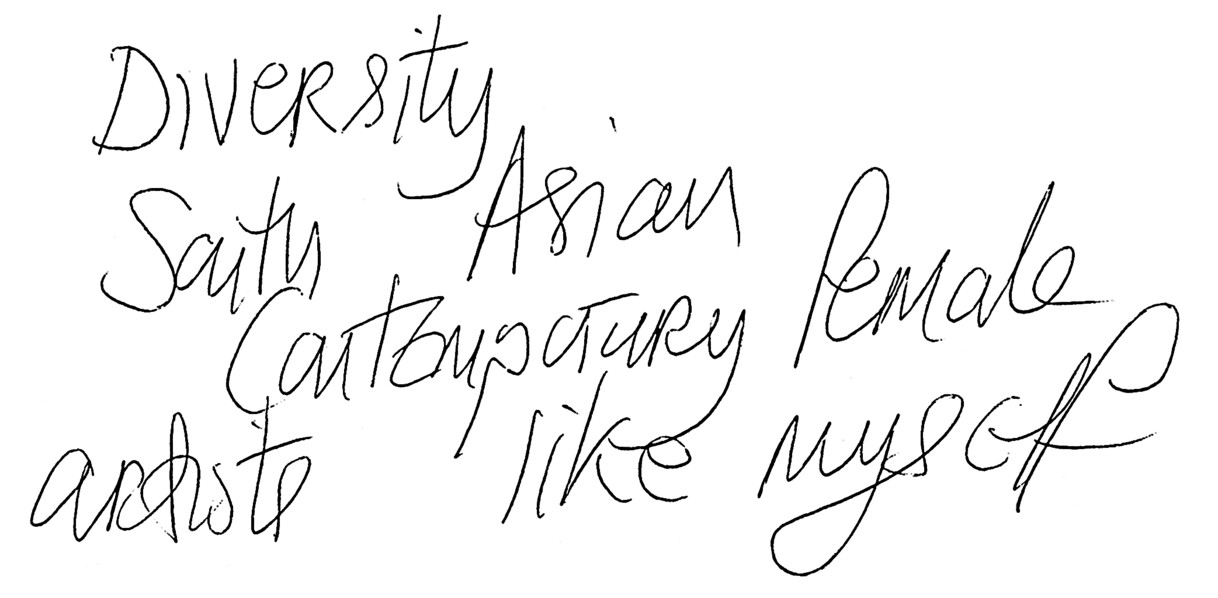 Diversity
South Asian Female
Contemporary
artists like myself